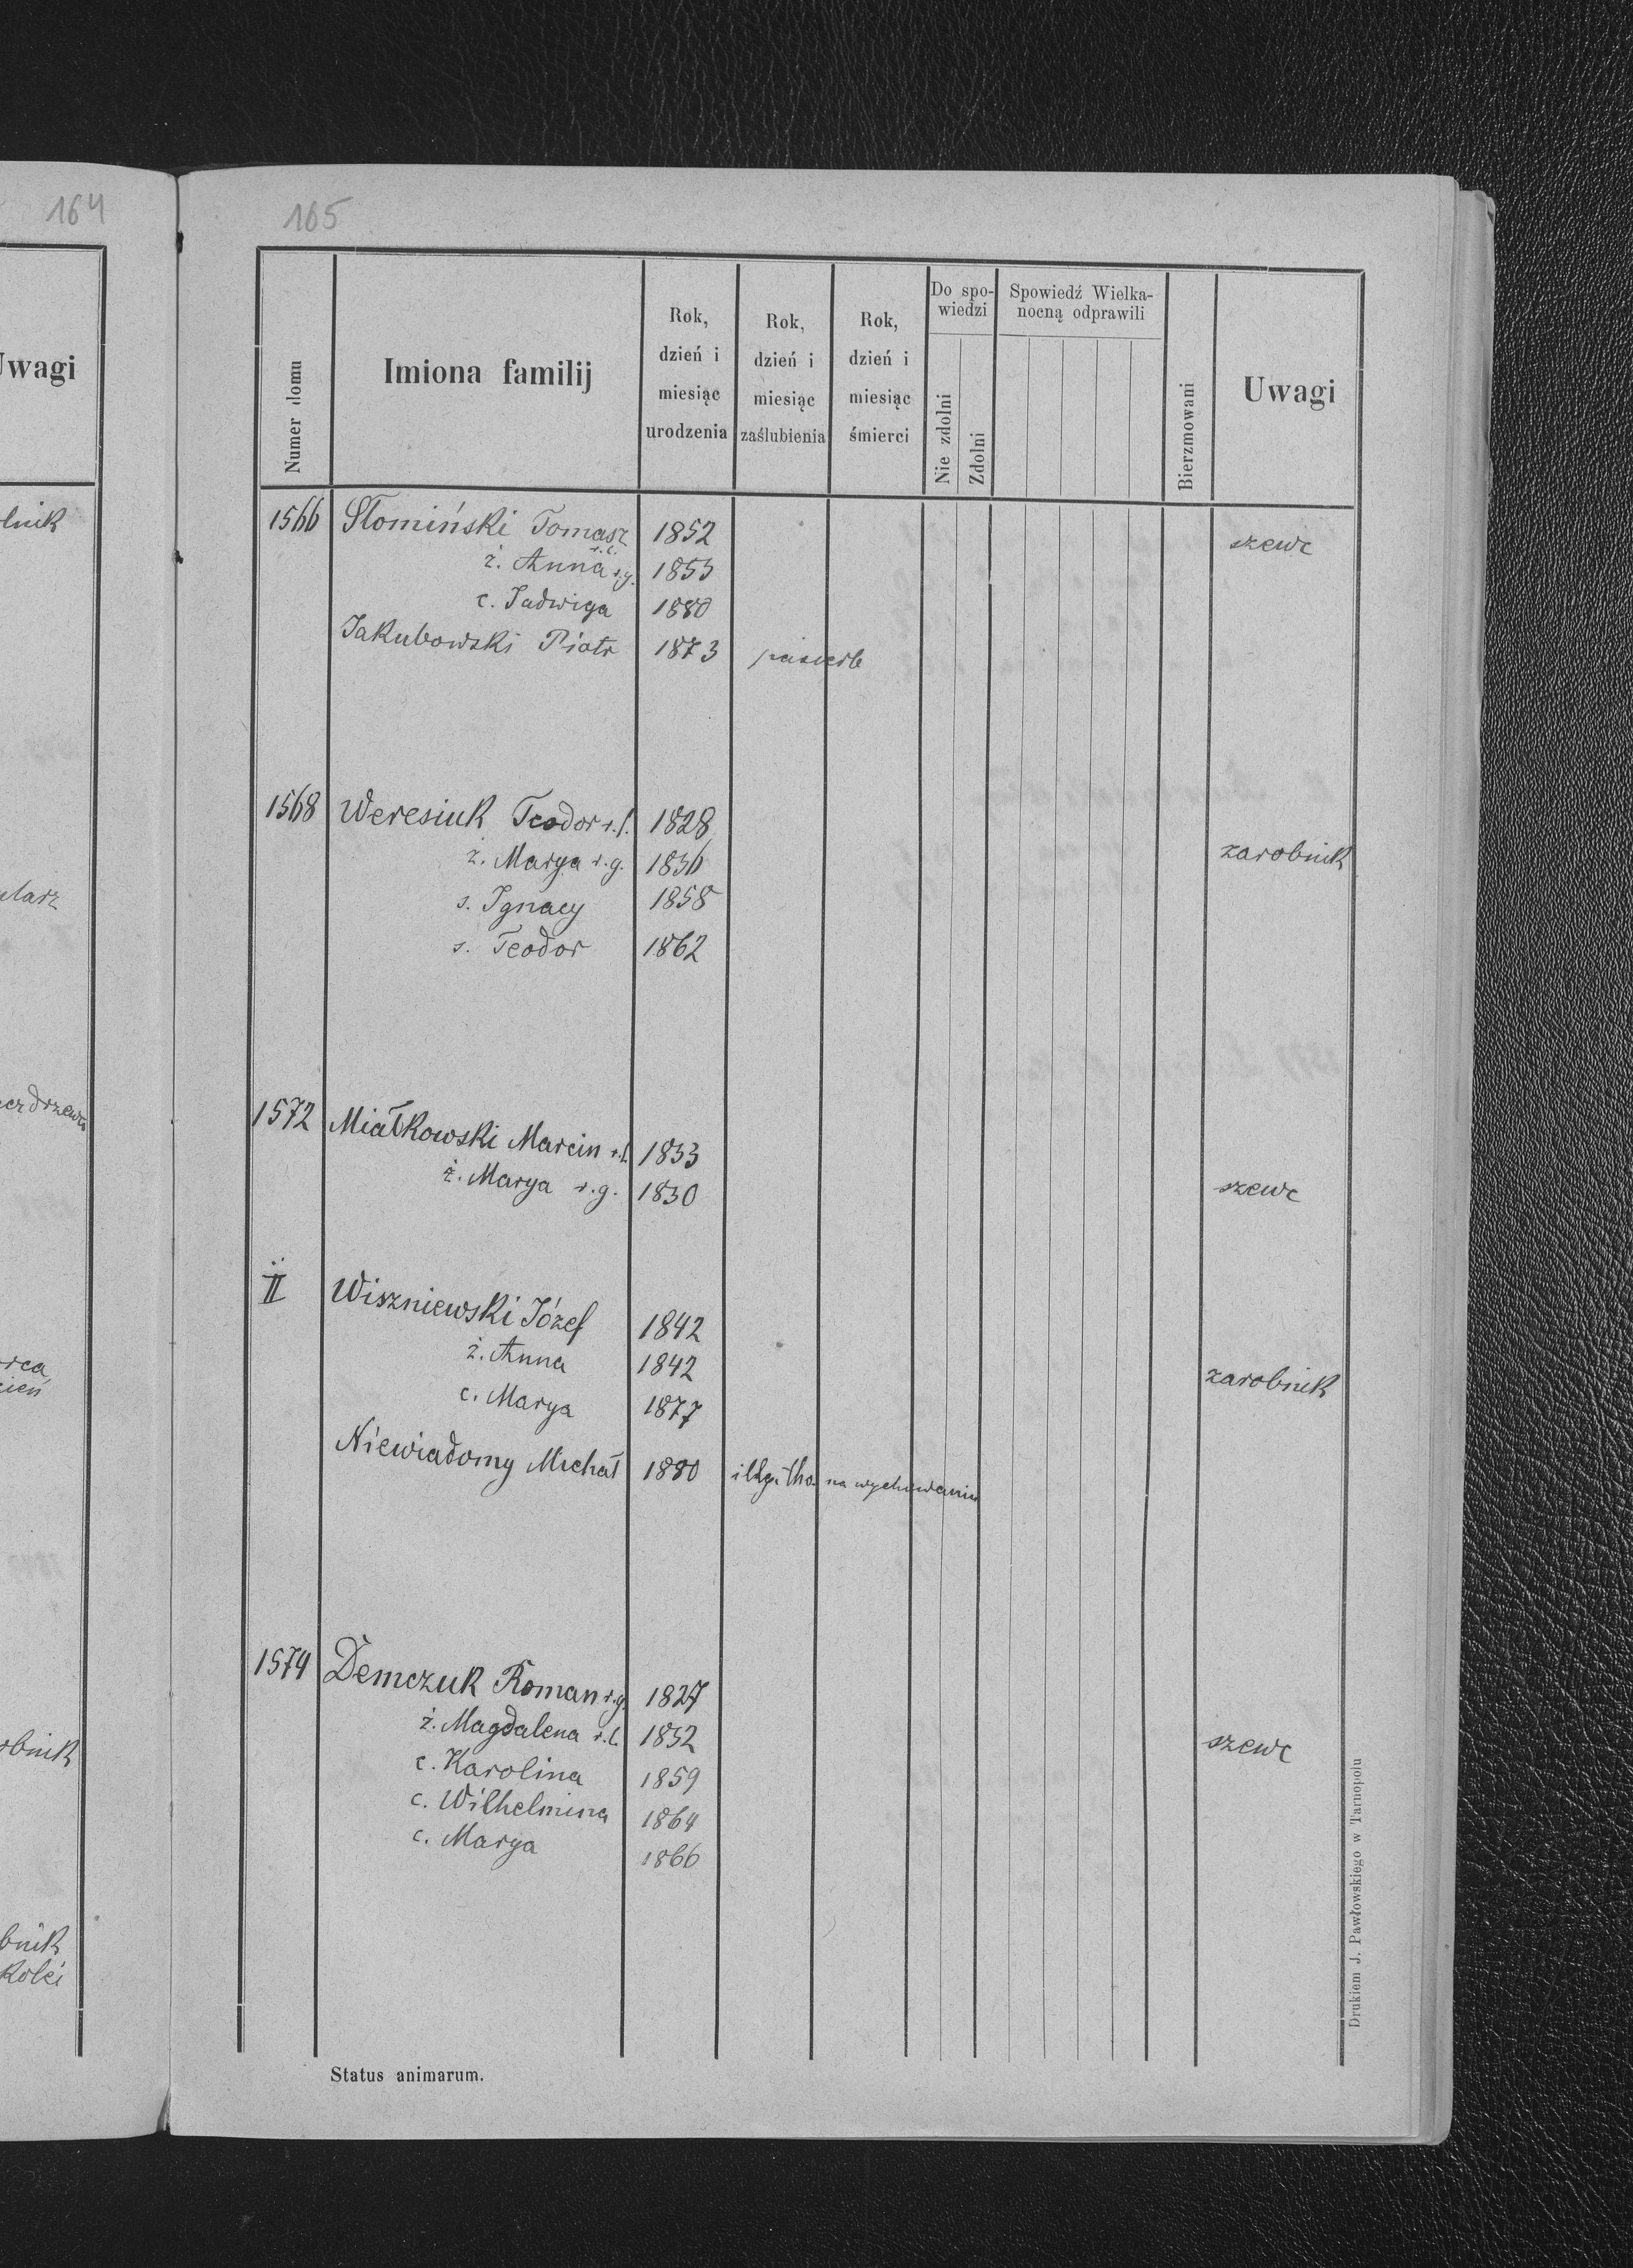 164
165
Uwagi
Numer domu
Imiona familij
Rok, dzień i miesiąc urodzenia
Rok, dzień i miesiąc zaślubienia
Rok, dzień i miesiąc śmierci
Do spowiedzi
Nie zdolni
Zdolni
Spowiedź Wielkanocną odprawili
Bierzmowani
Uwagi
1566 Słomiński Tomasz r.l. 1852 szewc
ż. Anna r.g. 1853
c. Jadwiga 1880
Jakubowski Piotr 1873 pasierb
1568 Weresiuk Teodor r.l. 1828
ż. Marya r.g. 1836 zarobnik
s. Ignacy 1858
s. Teodor 1862
1572 Miałkowski Marcin r.l. 1833
ż. Marya r.g. 1830 szewc
II Wiszniewski Józef 1842
ż. Anna 1842 zarobnik
c. Marya 1877
Niewiadomy Michał 1880 na wychowaniu
1574 Demczuk Roman r.g. 1827
ż. Magdalena r.l. 1832 szewc
c. Karolina 1859
c. Wilhelmina 1864
c. Marya 1866
Status animarum.
Drukiem J. Pawłowskiego w Tarnopolu